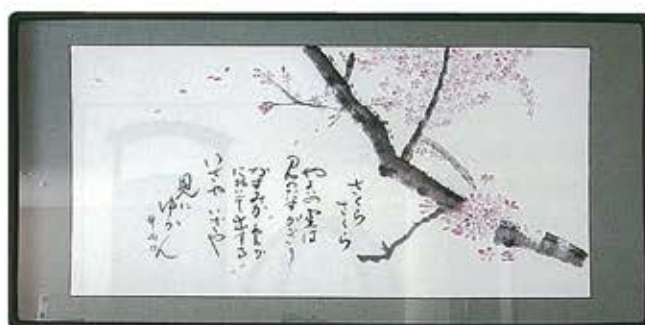 さくら
さくら
やよいの空は
見わたすかぎり
かすみか雲か
にほひぞ出ずる
いざや いざや
見に
ゆかん